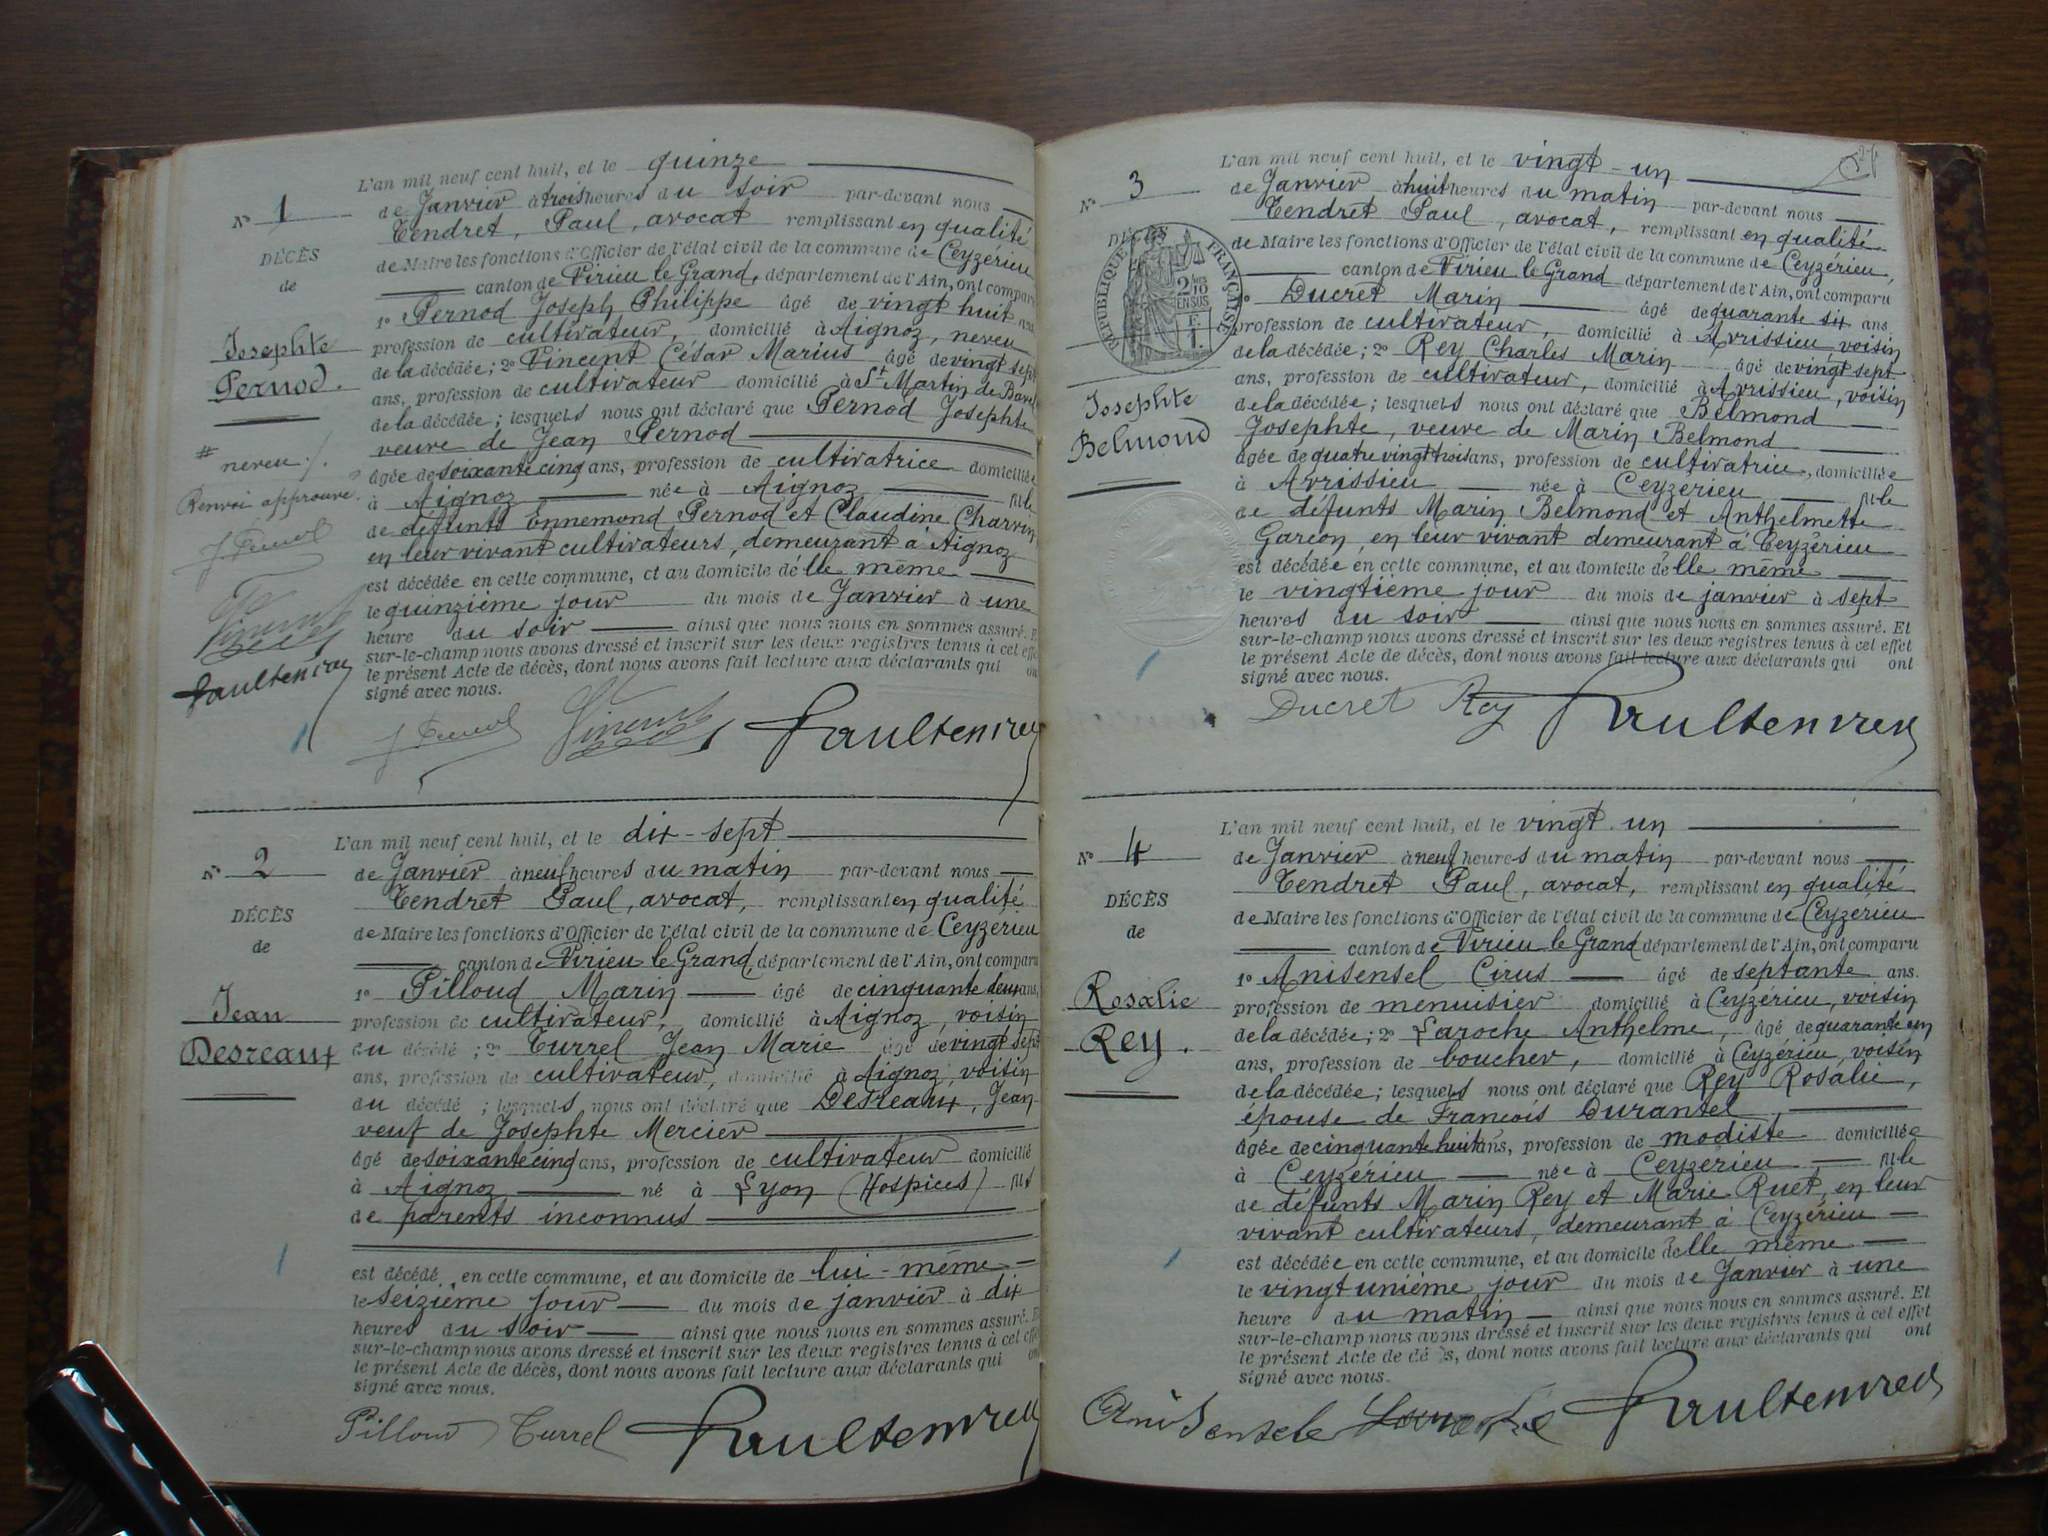 N° 1
DÉCÈS
de
Josephte
Pernod.
# neveu ./.
Renvoi approuvé.
Vincent
L'an mil neuf cent huit, et le quinze
de Janvier à trois heures du soir par-devant nous
Tendret, Paul, avocat remplissant en qualité
de Maire les fonctions d'Officier de l'état civil de la commune de Ceyzérieu
canton de Virieu le Grand, département de l'Ain, ont comparu
1° Pernod Joseph Philippe âgé de vingt huit ans
profession de cultivateur, domicilié à Aignoz, neveu
de la décédée; 2° Vincent César Marius âgé de vingt sept
ans, profession de cultivateur domicilié à St Martin de Bavel
de la décédée; lesquels nous ont déclaré que Pernod Josephte
veuve de Jean Pernod
âgée de soixante cinq ans, profession de cultivatrice domiciliée
à Aignoz née à Aignoz fille
de défunts Ennemond Pernod et Claudine Charvin
en leur vivant cultivateurs, demeurant à Aignoz
est décédée en cette commune, et au domicile d'elle même
le quinzième jour du mois de Janvier à une
heure du soir ainsi que nous nous en sommes assuré. Et
sur-le-champ nous avons dressé et inscrit sur les deux registres tenus à cet effet
le présent Acte de décès, dont nous avons fait lecture aux déclarants qui ont
signé avec nous.
Vincent
N° 2
DÉCÈS
de
Jean
Desreaux
L'an mil neuf cent huit, et le dix-sept
de Janvier à neuf heures du matin par-devant nous
Tendret Paul, avocat, remplissant en qualité
de Maire les fonctions d'Officier de l'état civil de la commune de Ceyzérieu
canton de Virieu le Grand, département de l'Ain, ont comparu
1° Pilloud Marin âgé de cinquante deux ans,
profession de cultivateur, domicilié à Aignoz, voisin
du décédé; 2° Turrel Jean Marie âgé de vingt sept
ans, profession de cultivateur, domicilié à Aignoz, voisin
du décédé; lesquels nous ont déclaré que Desreaux, Jean
veuf de Josephte Mercier
âgé de soixante cinq ans, profession de cultivateur domicilié
à Aignoz né à Lyon (Hospices) fils
de parents inconnus
est décédé en cette commune, et au domicile de lui-même
le seizième jour du mois de janvier à dix
heures du soir ainsi que nous nous en sommes assuré. Et
sur-le-champ nous avons dressé et inscrit sur les deux registres tenus à cet effet
le présent Acte de décès, dont nous avons fait lecture aux déclarants qui ont
signé avec nous.
Pilloud Turrel
N° 3
DÉCÈS
RÉPUBLIQUE FRANÇAISE
2/10 EN SUS
Josephte
Belmond
L'an mil neuf cent huit, et le vingt-un
de Janvier à huit heures du matin par-devant nous
Tendret Paul, avocat, remplissant en qualité
de Maire les fonctions d'Officier de l'état civil de la commune de Ceyzérieu,
canton de Virieu le Grand département de l'Ain, ont comparu
1° Ducret Marin âgé de quarante six ans
profession de cultivateur, domicilié à Avrissieu, voisin
de la décédée; 2° Rey Charles Marin âgé de vingt sept
ans, profession de cultivateur, domicilié à Avrissieu, voisin
de la décédée; lesquels nous ont déclaré que Belmond
Josephte, veuve de Marin Belmond
âgée de quatre vingt trois ans, profession de cultivatrice, domiciliée
à Avrissieu née à Ceyzérieu fille
de défunts Marin Belmond et Anthelmette
Garçon, en leur vivant demeurant à Ceyzérieu
est décédée en cette commune, et au domicile d'elle même
le vingtième jour du mois de janvier à sept
heures du soir ainsi que nous nous en sommes assuré. Et
sur-le-champ nous avons dressé et inscrit sur les deux registres tenus à cet effet
le présent Acte de décès, dont nous avons fait lecture aux déclarants qui ont
signé avec nous.
Ducret Rey
N° 4
DÉCÈS
de
Rosalie
Rey.
L'an mil neuf cent huit, et le vingt-un
de Janvier à neuf heures du matin par-devant nous
Tendret Paul, avocat, remplissant en qualité
de Maire les fonctions d'Officier de l'état civil de la commune de Ceyzérieu
canton de Virieu le Grand département de l'Ain, ont comparu
1° Anisensel Cirus âgé de septante ans.
profession de menuisier domicilié à Ceyzérieu, voisin
de la décédée; 2° Laroche Anthelme, âgé de quarante un
ans, profession de boucher, domicilié à Ceyzérieu, voisin
de la décédée; lesquels nous ont déclaré que Rey Rosalie,
épouse de François Durantel,
âgée de cinquante huit ans, profession de modiste domiciliée
à Ceyzérieu née à Ceyzérieu fille
de défunts Marin Rey et Marie Ruet, en leur
vivant cultivateurs, demeurant à Ceyzérieu
est décédée en cette commune, et au domicile d'elle même
le vingt unième jour du mois de Janvier à une
heure du matin ainsi que nous nous en sommes assuré. Et
sur-le-champ nous avons dressé et inscrit sur les deux registres tenus à cet effet
le présent Acte de décès, dont nous avons fait lecture aux déclarants qui ont
signé avec nous.